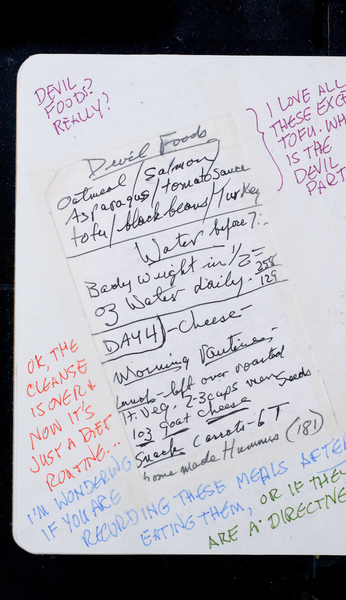 DEVIL
FOODS?
REALLY?
I LOVE ALL
THESE EXCE
TOFU. WH
IS THE
DEVIL
PART
Devil Foods
Oatmeal/Salmon/
Asparagus/tomato sauce
tofu/black beans/Turkey
Water before 7:-
Body weight in 1/2 =
oz Water daily. 258
129
DAY 4)-Cheese-
Morning Routine-
Lunch-left over roasted
Veg. 2-3 cups seeds
1oz goat cheese
Snack Carrots-6 T
home made Hummus (181)
OK, THE
CLEANSE
IS OVER &
NOW IT'S
JUST A DIET
ROUTINE...
I'M WONDERING
IF YOU ARE
RECORDING THESE MEALS AFTER
EATING THEM, OR IF THEY
ARE A DIRECTIVE